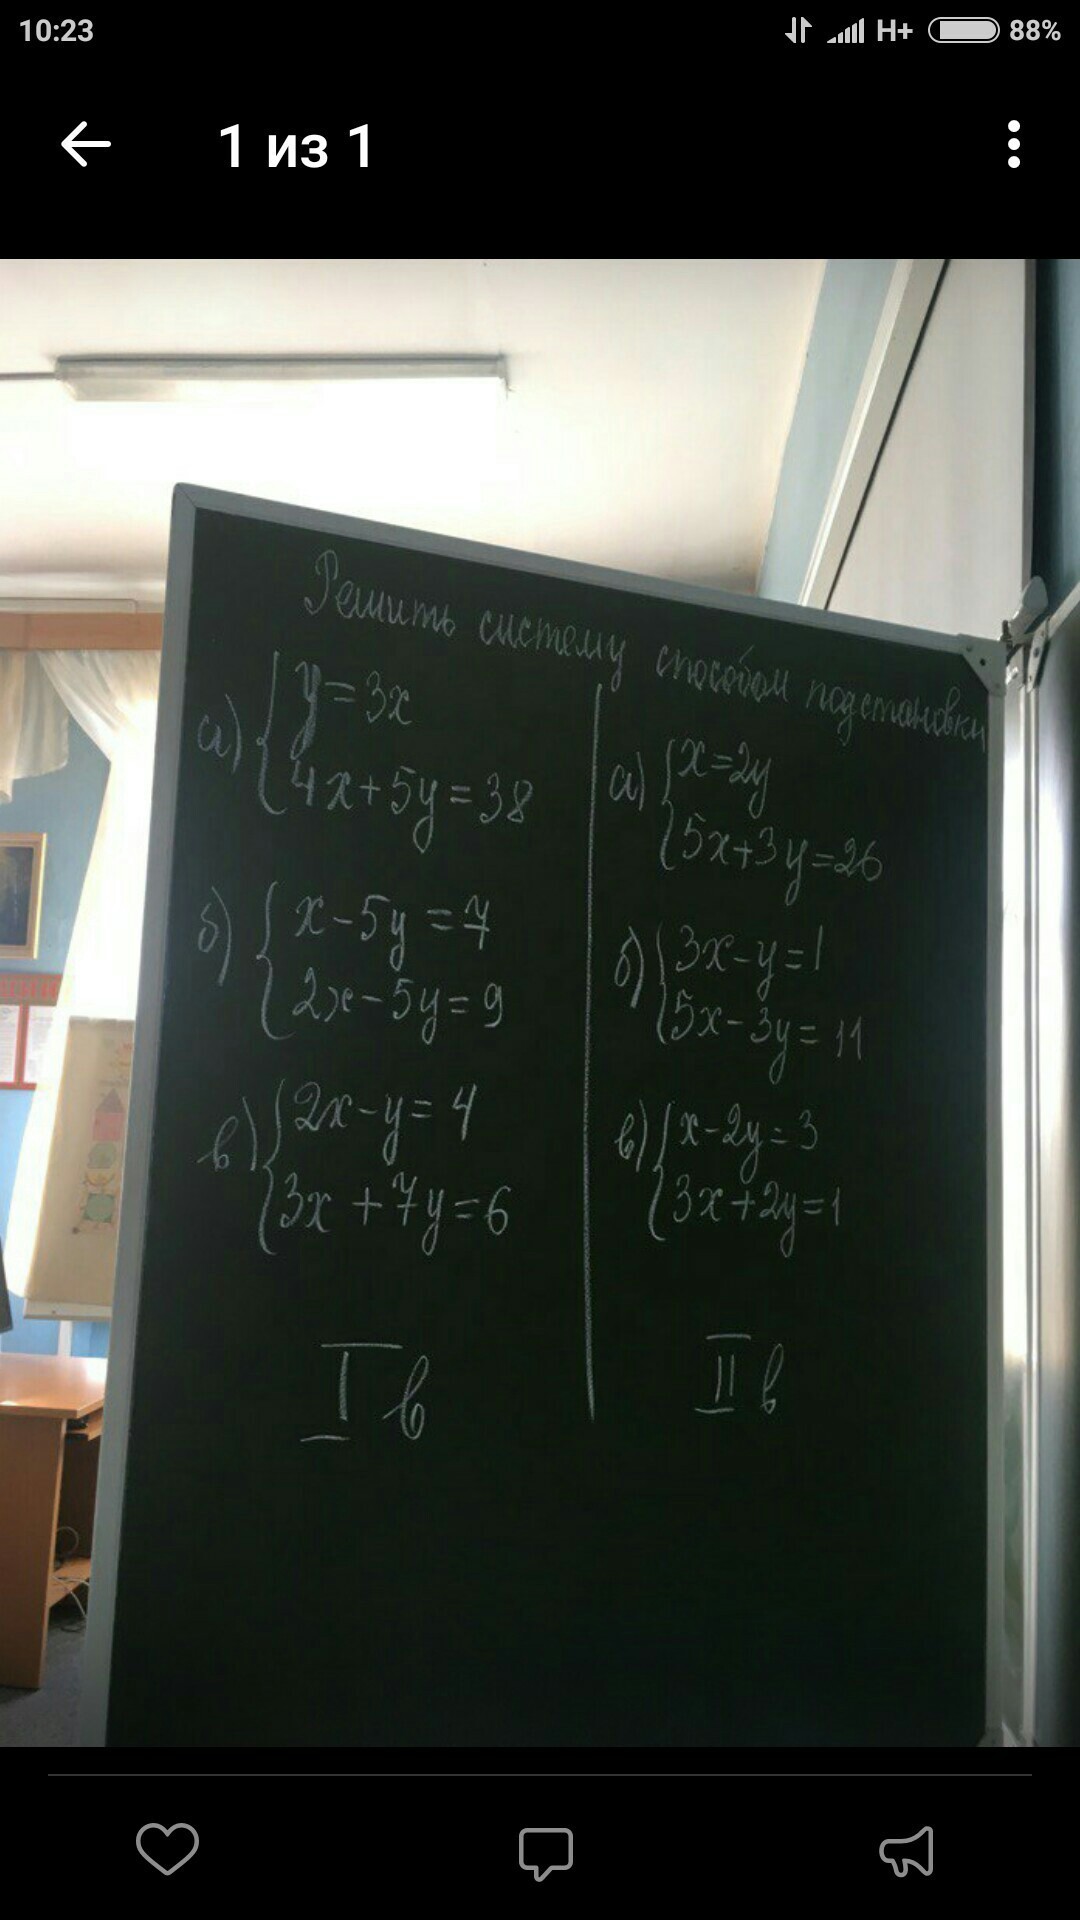 10:23
H+ 88%
1 из 1
Решить систему способом подстановки
а) { y = 3x
4x + 5y = 38
б) { x - 5y = 7
2x - 5y = 9
в) { 2x - y = 4
3x + 7y = 6
I в
а) { x = 2y
5x + 3y = 26
б) { 3x - y = 1
5x - 3y = 11
в) { x - 2y = 3
3x + 2y = 1
II в